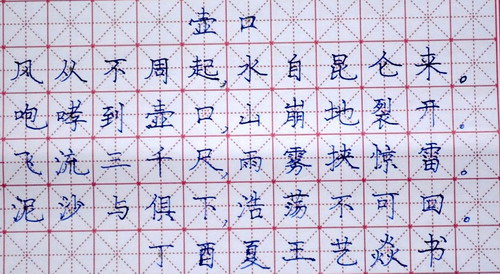 壶口
风从不周起,水自昆仑来。
咆哮到壶口,山崩地裂开。
飞流三千尺,雨雾挟惊雷。
泥沙与俱下,浩荡不可回。
丁酉夏王艺焱书